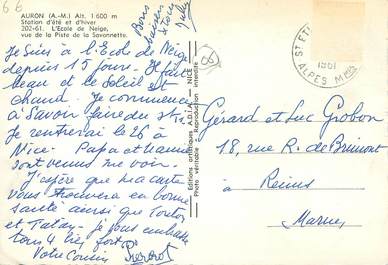 66
AURON (A.-M.) Alt. 1.600 m
Station d'été et d'hiver
202-61. L'Ecole de Neige,
vue de la Piste de la Savonnette.
Bons
baisers
à toute
Je suis à l'Ecole de Neige
depuis 15 jours. Il fait
beau et le Soleil est
chaud. Je commence
à savoir faire du ski.
Je rentrerai le 26 à
Nice. Papa et
sont venus me voir.
J'espère que ma carte
vous trouvera en bonne
santé ainsi que Tonton
et Tatay. Je vous embrasse
tous 4 bien fort
Votre Cousin
Editions artistiques A.D.I.A. - NICE
Photo véritable - Reproduction interdite
ST ETI
1961
ALPES Mmes
Gérard et Luc Grobon
18, rue R. de Brimont
à Reims
Marne